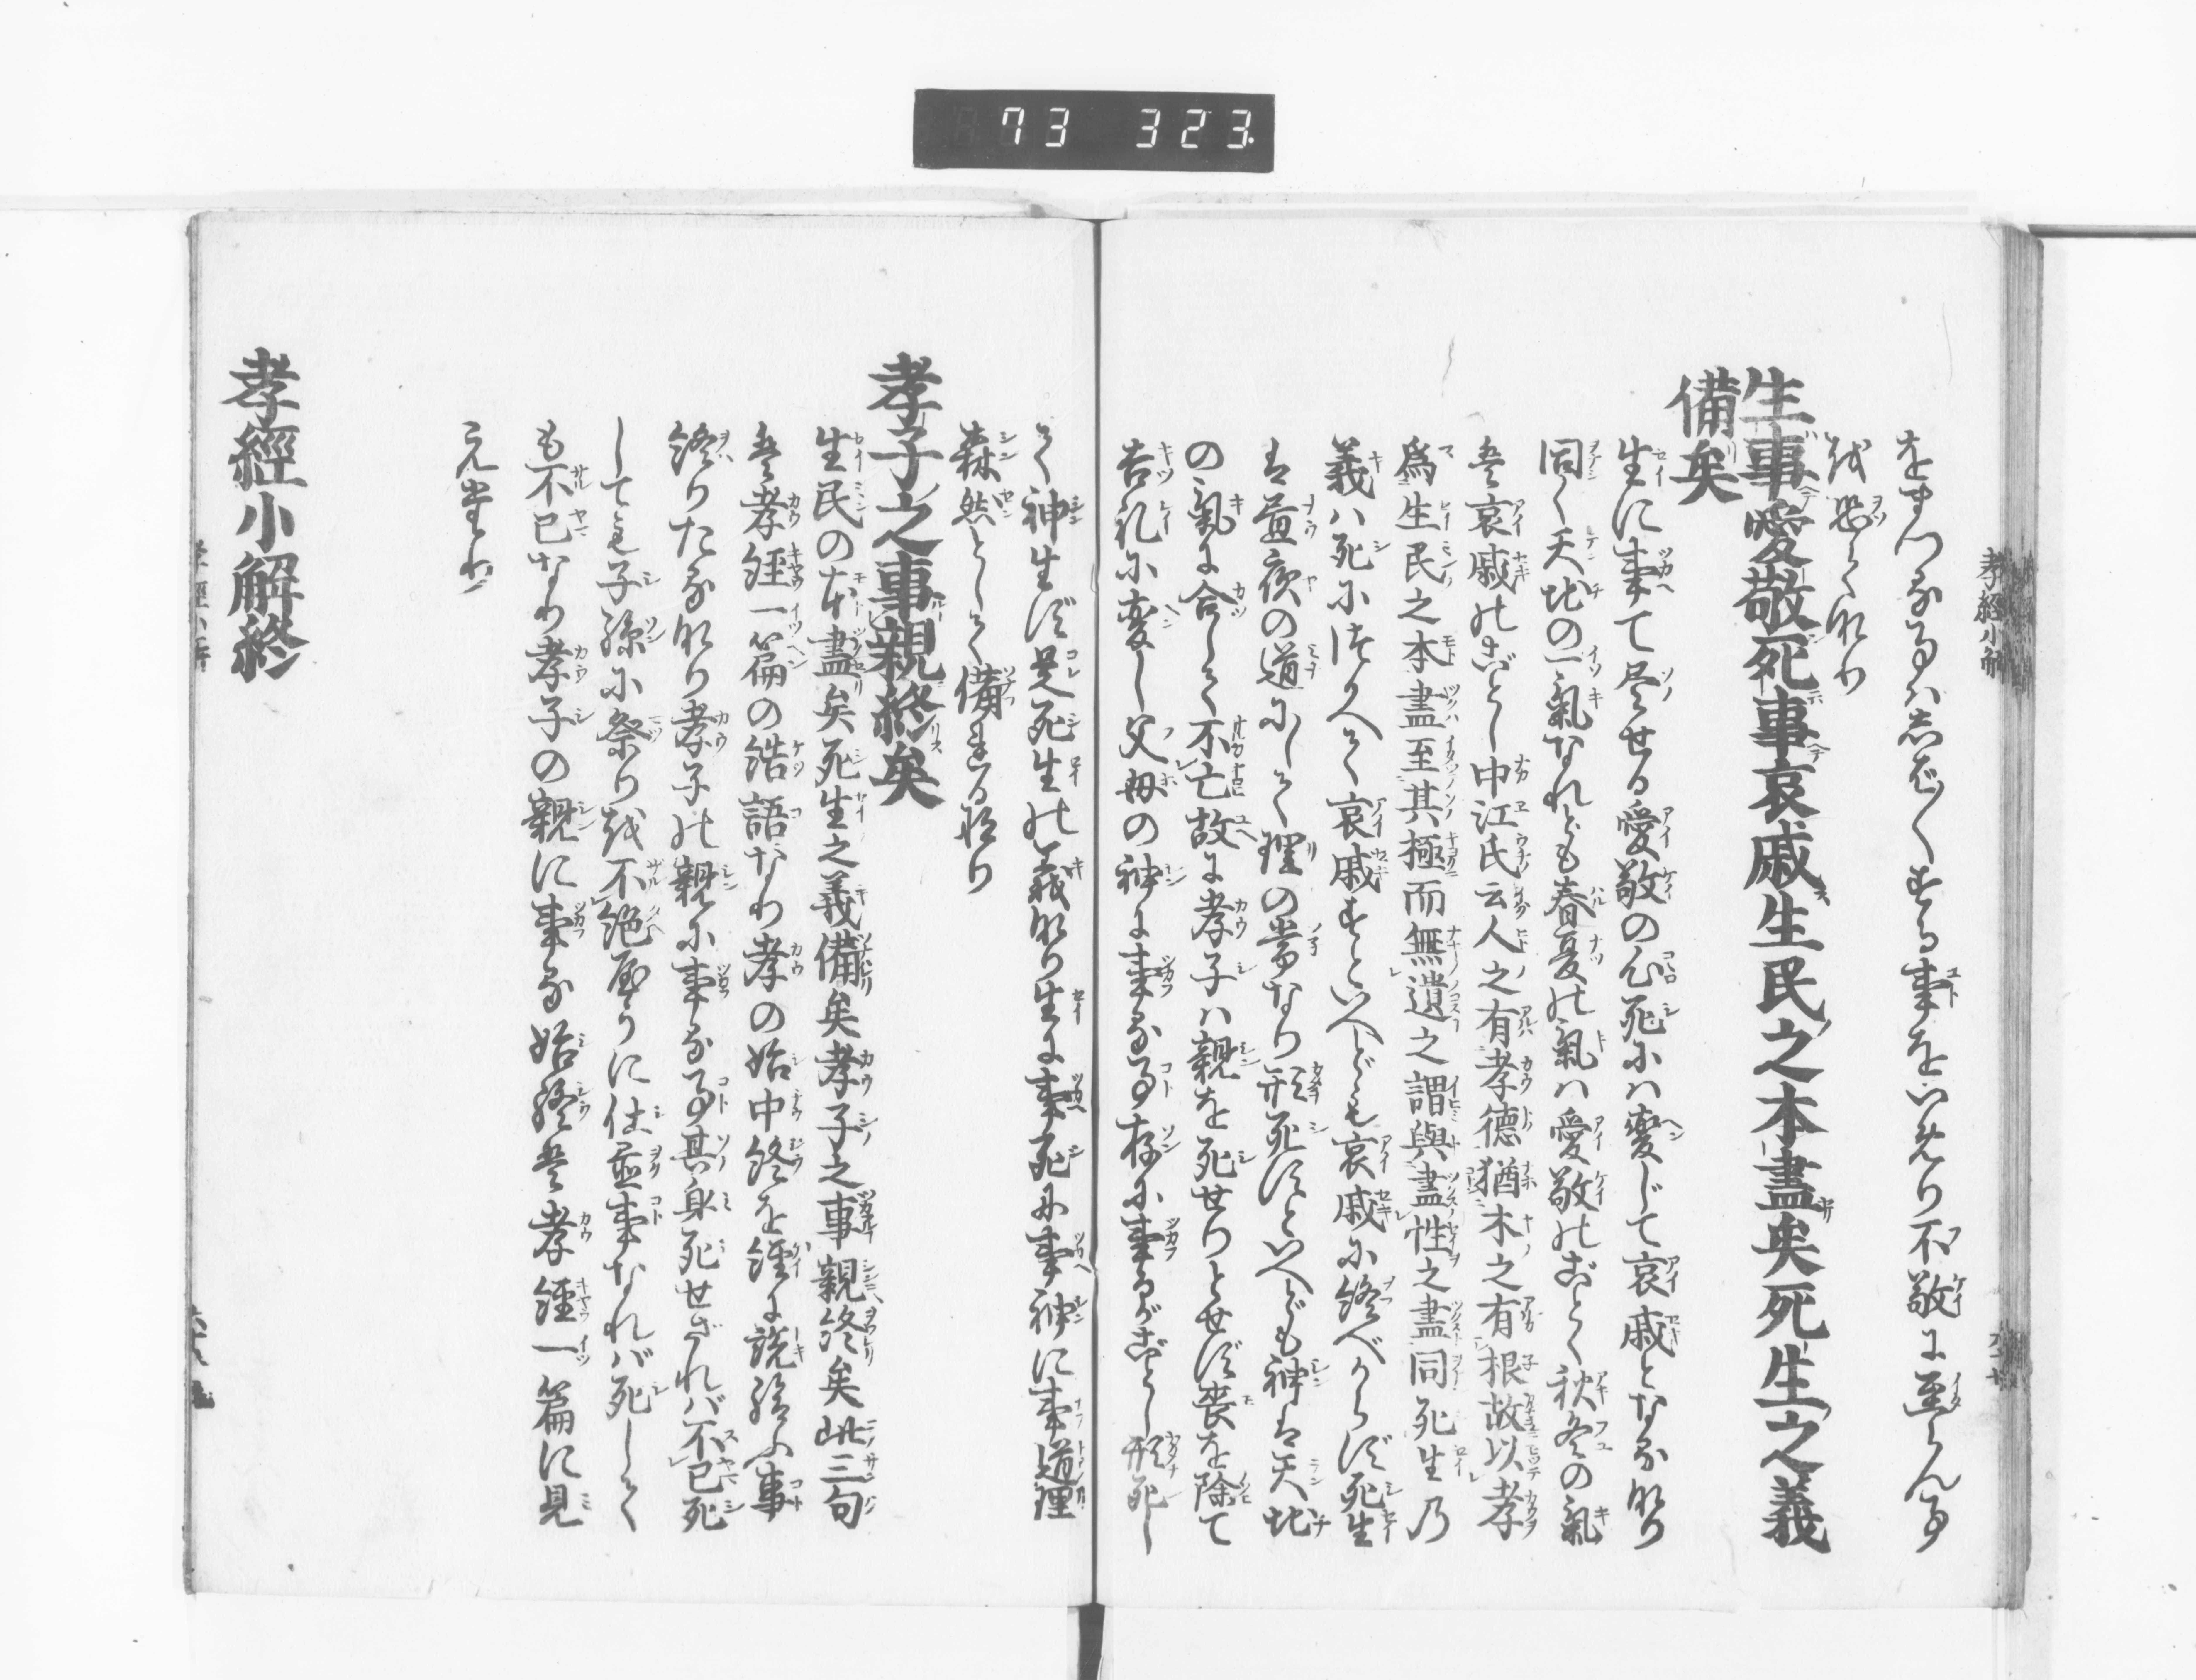 73 323
をまつる事ハ忘れ〳〵する事をいめり不敬に至らん事
を恐てなり
生事愛敬死事哀戚生民之本盡矣死生之義
備矣
生に事て尽せる愛敬の心死にハ変じて哀戚となるなり
同く天地の一氣なれども春夏の氣ハ愛敬のごとく秋冬の氣
是哀戚のごとし中江氏云人之有孝德猶木之有根故以孝
爲生民之本盡至其極而無遺之謂與盡性之盡同死生乃
義ハ死につかへて哀戚すといへども哀戚に終べからず死生
は昼夜の道にして理の常なり形死すといへども神は天地
の氣に合して不亡故に孝子ハ親を死せりとせず喪を除て
吉礼に変し父母の神に事る事存に事るがごとし形死し
て神生ず是死生の義なり生に事死に事神に事道理
森然として備れるなり
孝子之事親終矣
生民の本盡矣死生之義備矣孝子之事親終矣此三句
是孝經一篇の結語なり孝の始中終を經に説給ふ事
終りたるなり孝子の親に事る事其身死せざれバ不已死
しても子孫に祭りを不絶やうに仕置事なれバ死して
も不已なり孝子の親に事る始終是孝經一篇に見
えまされり
孝經小解終
孝經小解